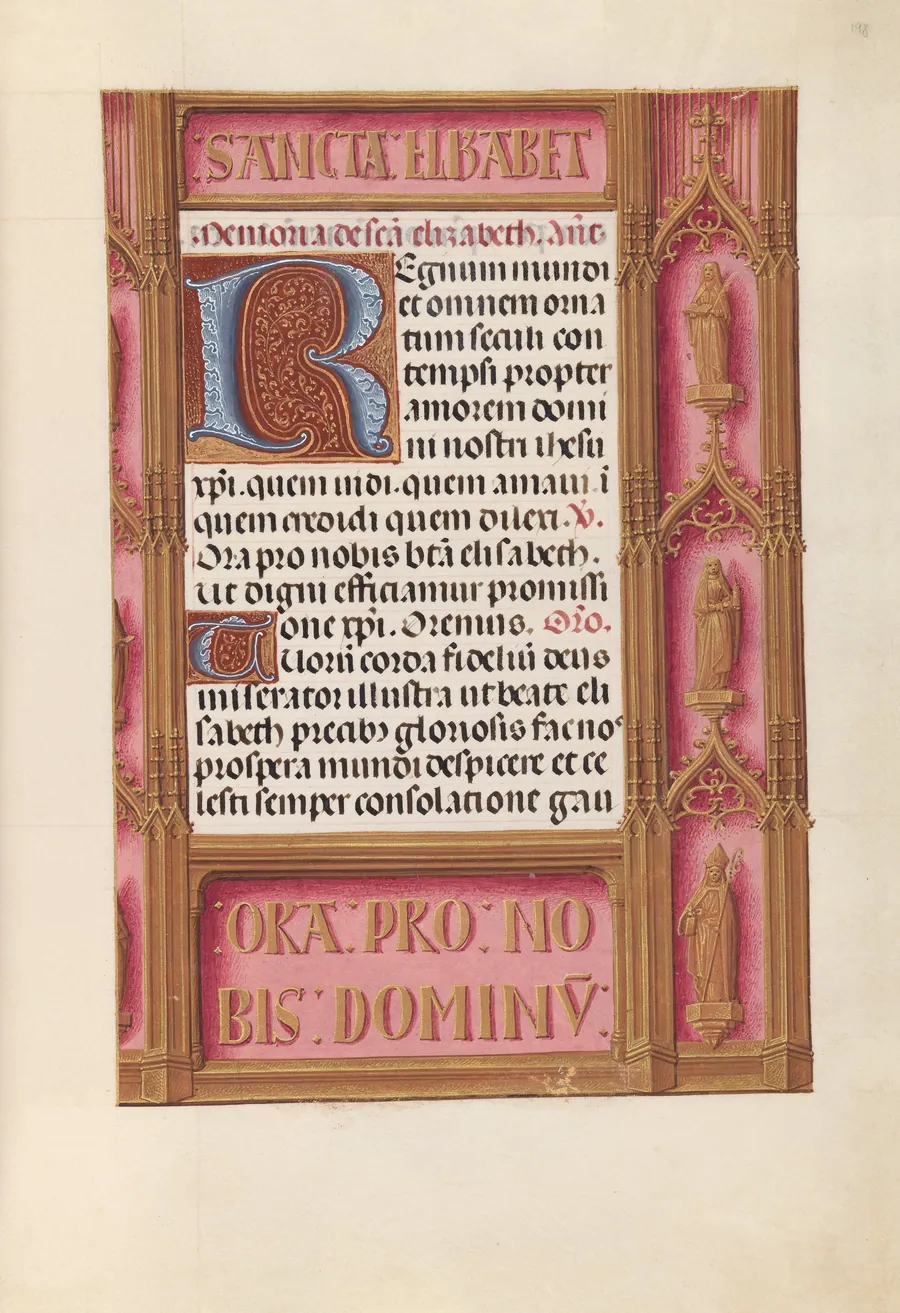 198
·SANCTA· ELIZABET
Memoria de scā elizabeth. Añt.
REgnum mundi
et omnem orna
tum seculi con
tempsi propter
amorem domi
ni nostri ihesu
xp̄i. quem uidi. quem amaui. ī
quem credidi quem dilexi. V̄.
Ora pro nobis btā elisabeth.
Ut digni efficiamur promissi
one xp̄i. Oremus. Or̄o.
TUorū corda fideliū deus
miserator illustra ut beate eli
sabeth precibꝰ gloriosis fac noˢ
prospera mundi despicere et ce
lesti semper consolatione gau
·ORA· PRO· NO
BIS· DOMINV̄·